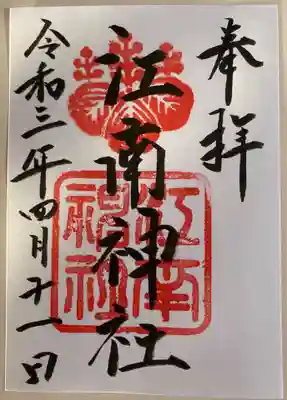 奉拝
江南神社
令和三年四月廿一日
江南
神社